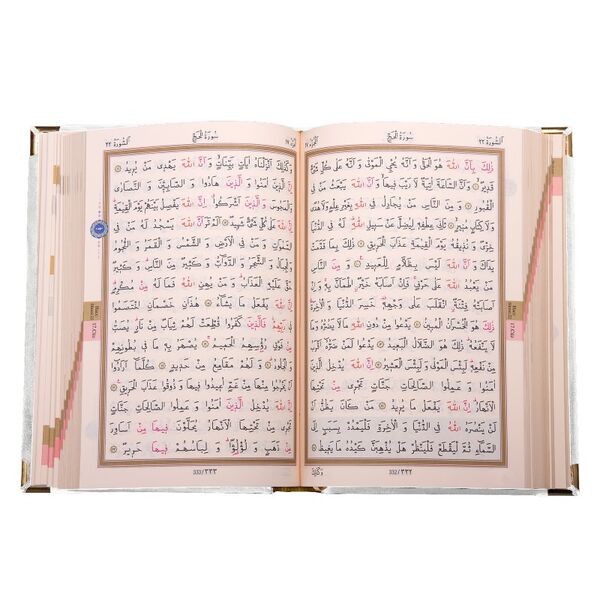 اَلسُّورَةُ ٢٢ سُورَةُ الْحَجِّ اَلْجُزْءُ ١٧
ذٰلِكَ بِاَنَّ اللّٰهَ هُوَ الْحَقُّ وَاَنَّهُ يُحْيِ الْمَوْتٰى وَاَنَّهُ عَلٰى كُلِّ شَيْءٍ
قَدِيرٌ ۞ وَاَنَّ السَّاعَةَ اٰتِيَةٌ لَا رَيْبَ فِيهَا وَاَنَّ اللّٰهَ يَبْعَثُ مَنْ فِي
الْقُبُورِ ۞ وَمِنَ النَّاسِ مَنْ يُجَادِلُ فِي اللّٰهِ بِغَيْرِ عِلْمٍ وَلَا هُدًى
وَلَا كِتَابٍ مُنِيرٍ ۞ ثَانِيَ عِطْفِهِ لِيُضِلَّ عَنْ سَبِيلِ اللّٰهِ لَهُ فِي الدُّنْيَا
خِزْيٌ وَنُذِيقُهُ يَوْمَ الْقِيٰمَةِ عَذَابَ الْحَرِيقِ ۞ ذٰلِكَ بِمَا قَدَّمَتْ
يَدَاكَ وَاَنَّ اللّٰهَ لَيْسَ بِظَلَّامٍ لِلْعَبِيدِ ۞ وَمِنَ النَّاسِ
مَنْ يَعْبُدُ اللّٰهَ عَلٰى حَرْفٍ فَاِنْ اَصَابَهُ خَيْرٌ اطْمَاَنَّ بِهِ وَاِنْ
اَصَابَتْهُ فِتْنَةٌ انْقَلَبَ عَلٰى وَجْهِهِ خَسِرَ الدُّنْيَا وَالْاٰخِرَةَ
ذٰلِكَ هُوَ الْخُسْرَانُ الْمُبِينُ ۞ يَدْعُوا مِنْ دُونِ اللّٰهِ مَا لَا يَضُرُّهُ وَمَا
لَا يَنْفَعُهُ ذٰلِكَ هُوَ الضَّلَالُ الْبَعِيدُ ۞ يَدْعُوا لَمَنْ ضَرُّهُ اَقْرَبُ
مِنْ نَفْعِهِ لَبِئْسَ الْمَوْلٰى وَلَبِئْسَ الْعَشِيرُ ۞ اِنَّ اللّٰهَ يُدْخِلُ
الَّذِينَ اٰمَنُوا وَعَمِلُوا الصَّالِحَاتِ جَنَّاتٍ تَجْرِي مِنْ تَحْتِهَا
الْاَنْهَارُ اِنَّ اللّٰهَ يَفْعَلُ مَا يُرِيدُ ۞ مَنْ كَانَ يَظُنُّ اَنْ
لَنْ يَنْصُرَهُ اللّٰهُ فِي الدُّنْيَا وَالْاٰخِرَةِ فَلْيَمْدُدْ بِسَبَبٍ اِلَى
السَّمَاءِ ثُمَّ لْيَقْطَعْ فَلْيَنْظُرْ هَلْ يُذْهِبَنَّ كَيْدُهُ مَا يَغِيظُ ۞
332/٣٣٢
وَكَذٰلِكَ
اَلسُّورَةُ ٢٢ سُورَةُ الْحَجِّ
وَكَذٰلِكَ اَنْزَلْنَاهُ اٰيَاتٍ بَيِّنَاتٍ وَاَنَّ اللّٰهَ يَهْدِي مَنْ يُرِيدُ ۞
اِنَّ الَّذِينَ اٰمَنُوا وَالَّذِينَ هَادُوا وَالصَّابِئِينَ وَالنَّصَارٰى
وَالْمَجُوسَ وَالَّذِينَ اَشْرَكُوا اِنَّ اللّٰهَ يَفْصِلُ بَيْنَهُمْ يَوْمَ الْقِيٰمَةِ
اِنَّ اللّٰهَ عَلٰى كُلِّ شَيْءٍ شَهِيدٌ ۞ اَلَمْ تَرَ اَنَّ اللّٰهَ يَسْجُدُ لَهُ مَنْ فِي
السَّمٰوَاتِ وَمَنْ فِي الْاَرْضِ وَالشَّمْسُ وَالْقَمَرُ وَالنُّجُومُ
وَالْجِبَالُ وَالشَّجَرُ وَالدَّوَابُّ وَكَثِيرٌ مِنَ النَّاسِ وَكَثِيرٌ
حَقَّ عَلَيْهِ الْعَذَابُ وَمَنْ يُهِنِ اللّٰهُ فَمَا لَهُ مِنْ مُكْرِمٍ
اِنَّ اللّٰهَ يَفْعَلُ مَا يَشَاءُ ۞ هٰذَانِ خَصْمَانِ اخْتَصَمُوا
فِي رَبِّهِمْ فَالَّذِينَ كَفَرُوا قُطِّعَتْ لَهُمْ ثِيَابٌ مِنْ نَارٍ يُصَبُّ
مِنْ فَوْقِ رُؤُسِهِمُ الْحَمِيمُ ۞ يُصْهَرُ بِهِ مَا فِي بُطُونِهِمْ
وَالْجُلُودُ ۞ وَلَهُمْ مَقَامِعُ مِنْ حَدِيدٍ ۞ كُلَّمَا اَرَادُوا
اَنْ يَخْرُجُوا مِنْهَا مِنْ غَمٍّ اُعِيدُوا فِيهَا وَذُوقُوا عَذَابَ الْحَرِيقِ ۞
اِنَّ اللّٰهَ يُدْخِلُ الَّذِينَ اٰمَنُوا وَعَمِلُوا الصَّالِحَاتِ جَنَّاتٍ
تَجْرِي مِنْ تَحْتِهَا الْاَنْهَارُ يُحَلَّوْنَ فِيهَا مِنْ اَسَاوِرَ
مِنْ ذَهَبٍ وَلُؤْلُؤًا وَلِبَاسُهُمْ فِيهَا حَرِيرٌ ۞
333/٣٣٣
17.Cüz
17.Cüz